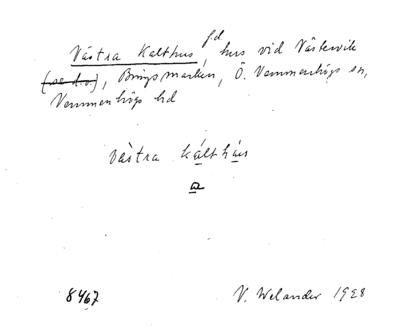 Västra Kalthus, f.d. hus vid Västervik
(se d.o.), Bingsmarken, Ö. Vemmenhögs sn,
Vemmenhögs hd
västra kálthús
a
8467 V. Welander 1928